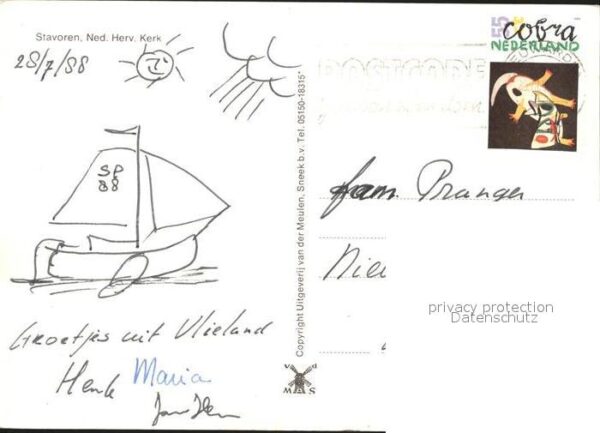 Stavoren, Ned. Herv. Kerk
28/7/88
SP
88
Groetjes uit Vlieland
Henk Maria
Copyright Uitgeverij van der Meulen, Sneek b.v. Tel. 05150-18315*
V D
MAS
55 c cobra
NEDERLAND
fam. Pranger
Nie
privacy protection
Datenschutz